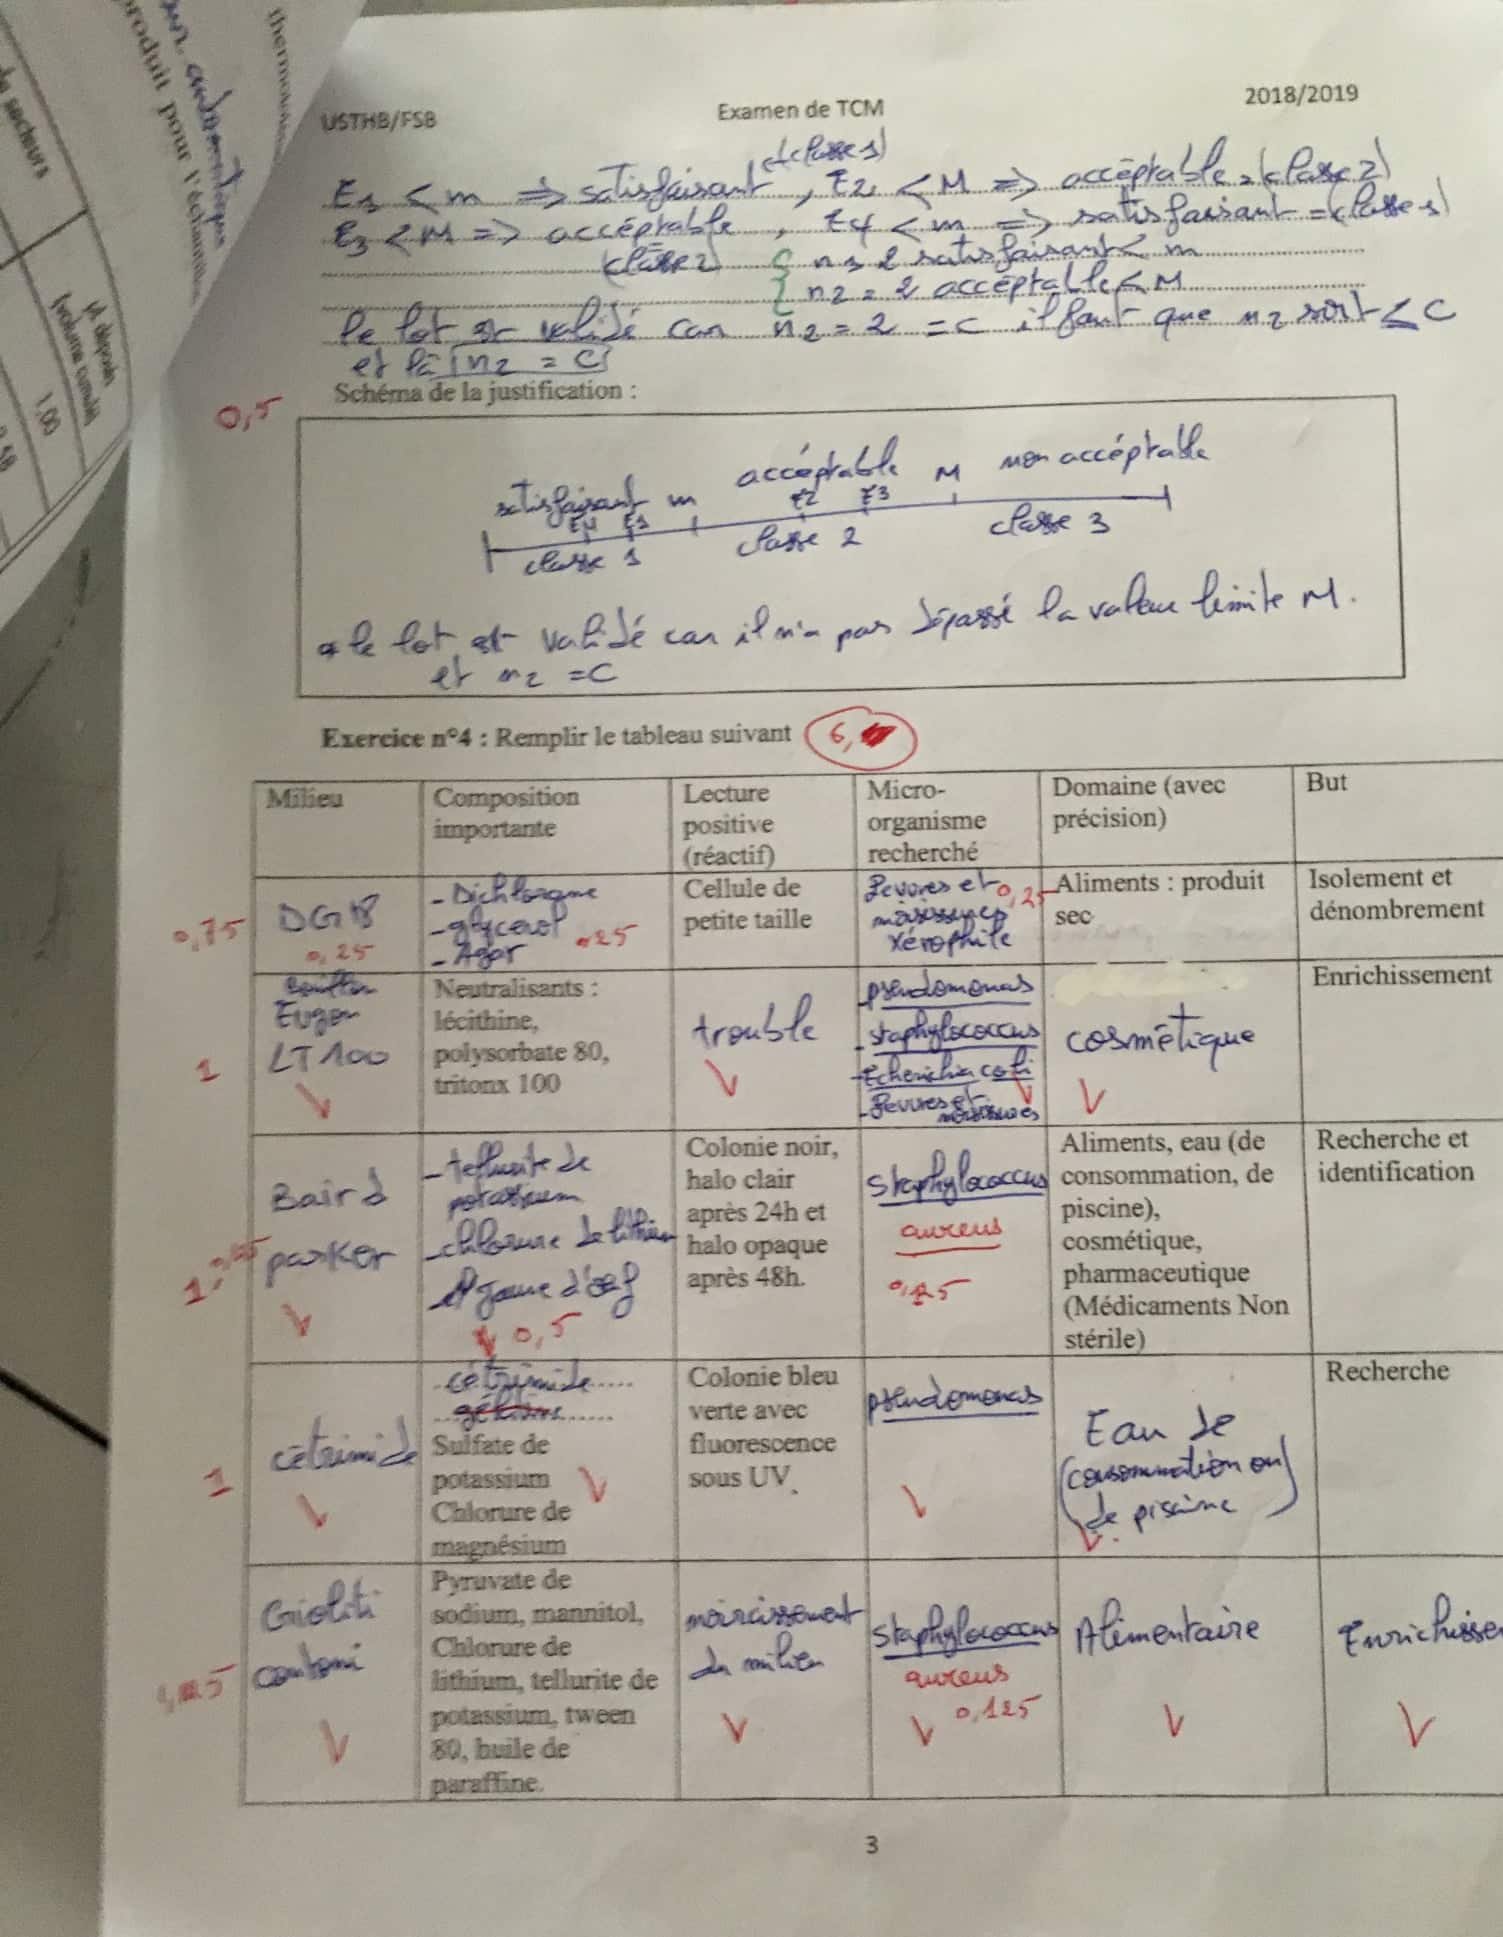 thermo
produit pour l'échantillon
de secteurs
yL déposés
(volume cumulé)
1,00
USTHB/FSB
Examen de TCM
2018/2019
(classe 1)
E1 < m => satisfaisant , E2 < M => accéptable = (classe 2)
E3 < M => accéptable , E4 < m => satisfaisant = (classe 1)
(classe 2) n1 2 satisfaisant < m
n2 = 2 accéptable < M
le lot est validé car n2 = 2 = C il faut que n2 soit ≤ C
et là n2 = C
Schéma de la justification :
0,5
satisfaisant m accéptable M non accéptable
E4 E1 E2 E3
classe 1 classe 2 classe 3
le lot est validé car il n'a pas dépassé la valeur limite M.
et n2 = C
Exercice n°4 : Remplir le tableau suivant 6,
Milieu
Composition
importante
Lecture
positive
(réactif)
Micro-
organisme
recherché
Domaine (avec
précision)
But
0,75
DG18
0,25
- Dichloran
- glycerol
- Agar
025
Cellule de
petite taille
levures et
moisissures
xérophile
0,25
Aliments : produit
sec
Isolement et
dénombrement
1
Eugon
LT100
Neutralisants :
lécithine,
polysorbate 80,
tritonx 100
trouble
pseudomonas
- staphylococcus
- Echerichia coli
- levures et
moisissures
cosmétique
Enrichissement
Baird
parker
- tellurite de
potassium
- chlorure de lithium
jaune d'œuf
0,5
Colonie noir,
halo clair
après 24h et
halo opaque
après 48h.
staphylococcus
aureus
0,125
Aliments, eau (de
consommation, de
piscine),
cosmétique,
pharmaceutique
(Médicaments Non
stérile)
Recherche et
identification
1
cétrimide
cétrimide.....
Sulfate de
potassium
Chlorure de
magnésium
Colonie bleu
verte avec
fluorescence
sous UV.
pseudomonas
Eau de
(consommation ou
de piscine)
Recherche
Giolitti
contoni
Pyruvate de
sodium, mannitol,
Chlorure de
lithium, tellurite de
potassium, tween
80, huile de
paraffine.
noircissement
du milieu
staphylococcus
aureus
0,125
Alimentaire
Enrichisse
3